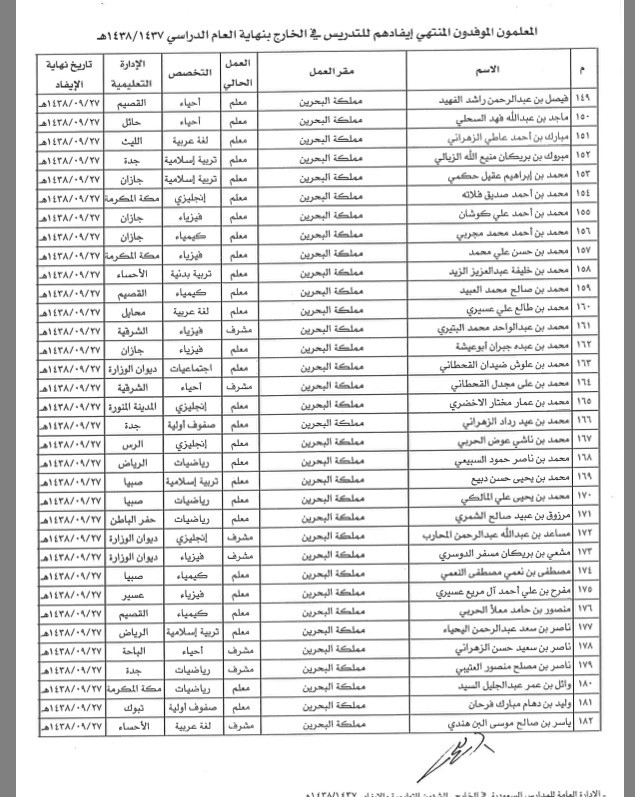 المعلمون الموفدون المنتهي إيفادهم للتدريس في الخارج بنهاية العام الدراسي ١٤٣٨/١٤٣٧هـ
م الاسم مقر العمل العمل الحالي التخصص الإدارة التعليمية تاريخ نهاية الإيفاد
١٤٩ فيصل بن عبدالرحمن راشد الفهيد مملكة البحرين معلم أحياء القصيم ١٤٣٨/٠٩/٢٧هـ
١٥٠ ماجد بن عبدالله فهد السحلي مملكة البحرين معلم أحياء حائل ١٤٣٨/٠٩/٢٧هـ
١٥١ مبارك بن أحمد عاطي الزهراني مملكة البحرين معلم لغة عربية الليث ١٤٣٨/٠٩/٢٧هـ
١٥٢ مبروك بن بريكان منيع الله الزيالي مملكة البحرين معلم تربية إسلامية جدة ١٤٣٨/٠٩/٢٧هـ
١٥٣ محمد بن إبراهيم عقيل حكمي مملكة البحرين معلم تربية إسلامية جازان ١٤٣٨/٠٩/٢٧هـ
١٥٤ محمد بن أحمد صديق فلاته مملكة البحرين معلم إنجليزي مكة المكرمة ١٤٣٨/٠٩/٢٧هـ
١٥٥ محمد بن أحمد علي كوشان مملكة البحرين معلم فيزياء جازان ١٤٣٨/٠٩/٢٧هـ
١٥٦ محمد بن أحمد محمد مجربي مملكة البحرين معلم كيمياء جازان ١٤٣٨/٠٩/٢٧هـ
١٥٧ محمد بن حسن علي محمد مملكة البحرين معلم فيزياء مكة المكرمة ١٤٣٨/٠٩/٢٧هـ
١٥٨ محمد بن خليفة عبدالعزيز الزيد مملكة البحرين معلم تربية بدنية الأحساء ١٤٣٨/٠٩/٢٧هـ
١٥٩ محمد بن صالح محمد العبيد مملكة البحرين معلم كيمياء القصيم ١٤٣٨/٠٩/٢٧هـ
١٦٠ محمد بن طالع علي عسيري مملكة البحرين معلم لغة عربية محايل ١٤٣٨/٠٩/٢٧هـ
١٦١ محمد بن عبدالواحد محمد البتيري مملكة البحرين مشرف فيزياء الشرقية ١٤٣٨/٠٩/٢٧هـ
١٦٢ محمد بن عبده جبران أبوعيشة مملكة البحرين معلم فيزياء جازان ١٤٣٨/٠٩/٢٧هـ
١٦٣ محمد بن علوش ضيدان القحطاني مملكة البحرين معلم اجتماعيات ديوان الوزارة ١٤٣٨/٠٩/٢٧هـ
١٦٤ محمد بن على مجدل القحطاني مملكة البحرين مشرف أحياء الشرقية ١٤٣٨/٠٩/٢٧هـ
١٦٥ محمد بن عمار مختار الاخضري مملكة البحرين معلم إنجليزي المدينة المنورة ١٤٣٨/٠٩/٢٧هـ
١٦٦ محمد بن عيد رداد الزهراني مملكة البحرين معلم صفوف أولية جدة ١٤٣٨/٠٩/٢٧هـ
١٦٧ محمد بن ناشي عوض الحربي مملكة البحرين معلم إنجليزي الرس ١٤٣٨/٠٩/٢٧هـ
١٦٨ محمد بن ناصر حمود السبيعي مملكة البحرين معلم رياضيات الرياض ١٤٣٨/٠٩/٢٧هـ
١٦٩ محمد بن يحيى حسن دبيع مملكة البحرين معلم تربية إسلامية صبيا ١٤٣٨/٠٩/٢٧هـ
١٧٠ محمد بن يحيى علي المالكي مملكة البحرين معلم رياضيات صبيا ١٤٣٨/٠٩/٢٧هـ
١٧١ مرزوق بن عبيد صالح الشمري مملكة البحرين معلم رياضيات حفر الباطن ١٤٣٨/٠٩/٢٧هـ
١٧٢ مساعد بن عبدالله عبدالرحمن المحارب مملكة البحرين مشرف إنجليزي ديوان الوزارة ١٤٣٨/٠٩/٢٧هـ
١٧٣ مشعي بن بريكان مسفر الدوسري مملكة البحرين مشرف فيزياء ديوان الوزارة ١٤٣٨/٠٩/٢٧هـ
١٧٤ مصطفى بن نعمي مصطفى النعمي مملكة البحرين معلم كيمياء صبيا ١٤٣٨/٠٩/٢٧هـ
١٧٥ مفرح بن علي أحمد آل مريع عسيري مملكة البحرين معلم فيزياء عسير ١٤٣٨/٠٩/٢٧هـ
١٧٦ منصور بن حامد معلأ الحربي مملكة البحرين معلم كيمياء القصيم ١٤٣٨/٠٩/٢٧هـ
١٧٧ ناصر بن سعد عبدالرحمن اليحياء مملكة البحرين معلم تربية إسلامية الرياض ١٤٣٨/٠٩/٢٧هـ
١٧٨ ناصر بن سعيد حسن الزهراني مملكة البحرين مشرف أحياء الباحة ١٤٣٨/٠٩/٢٧هـ
١٧٩ ناصر بن مصلح منصور العتيبي مملكة البحرين مشرف رياضيات جدة ١٤٣٨/٠٩/٢٧هـ
١٨٠ وائل بن عمر عبدالجليل السيد مملكة البحرين معلم رياضيات مكة المكرمة ١٤٣٨/٠٩/٢٧هـ
١٨١ وليد بن دهام مبارك فرحان مملكة البحرين معلم صفوف أولية تبوك ١٤٣٨/٠٩/٢٧هـ
١٨٢ ياسر بن صالح موسى البن هندي مملكة البحرين مشرف لغة عربية الأحساء ١٤٣٨/٠٩/٢٧هـ
الإدارة العامة للمدارس السعودية في الخارج